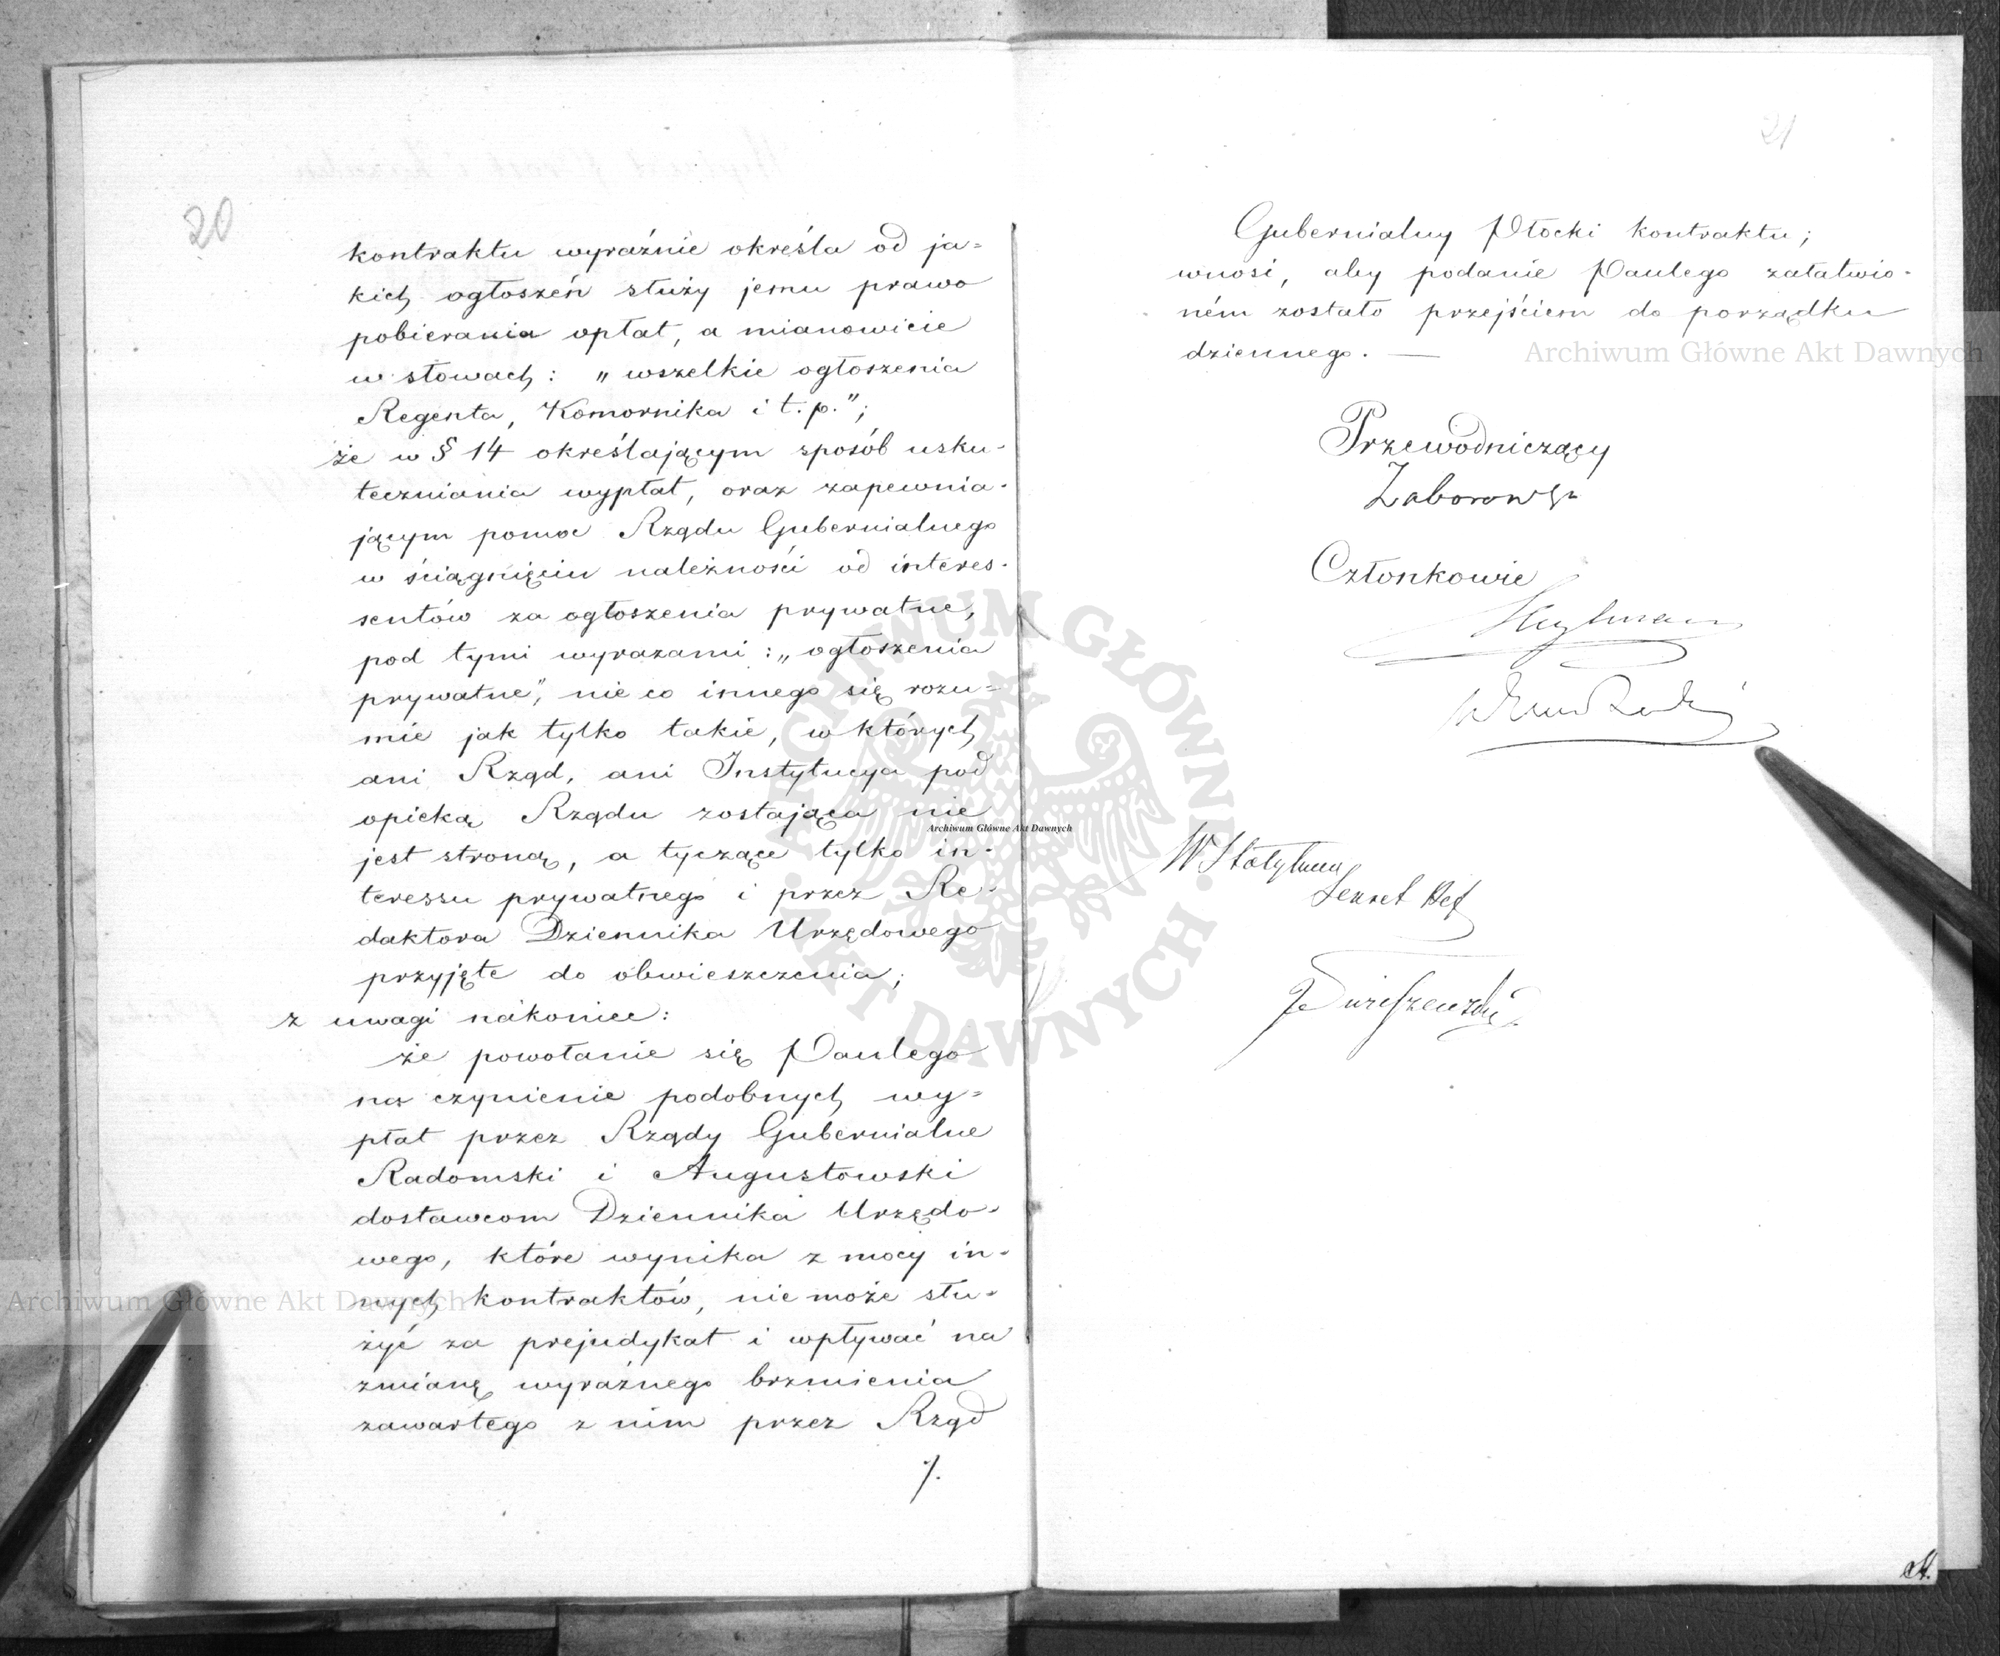 20
kontraktu wyraźnie określa od ja=
kich ogłoszeń służy jemu prawo
pobierania opłat, a mianowicie
w słowach: „wszelkie ogłoszenia
Regenta, Komornika i t. p.";
że w § 14 określającym sposób usku-
teczniania wypłat, oraz zapewnia-
jącym pomoc Rządu Gubernialnego
w ściągnięciu należności od interes-
sentów za ogłoszenia prywatne,
pod tymi wyrazami: „ogłoszenia
prywatne", nie co innego się rozu=
mie jak tylko takie, w których
ani Rząd, ani Instytucya pod
opieką Rządu zostająca nie
jest stroną, a tyczące tylko in-
teressu prywatnego i przez Re-
daktora Dziennika Urzędowego
przyjęte do obwieszczenia;
z uwagi nakoniec:
że powołanie się Paulego
na czynienie podobnych wy=
płat przez Rządy Gubernialne
Radomski i Augustowski
dostawcom Dziennika Urzędo-
wego, które wynika z mocy in-
nych kontraktów, nie może słu-
żyć za prejudykat i wpływać na
zmianę wyraźnego brzmienia
zawartego z nim przez Rząd
./.
21
Gubernialny Płocki kontraktu;
wnosi, aby podanie Paulego załatwio-
ném zostało przejściem do porządku
dziennego. —
Przewodniczący
Zaborowski
Członkowie
Heylman
W Zastępstwie
Sekret
Archiwum Główne Akt Dawnych
Archiwum Główne Akt Dawnych
Archiwum Główne Akt Dawnych
ARCHIWUM GŁÓWNE
AKT DAWNYCH